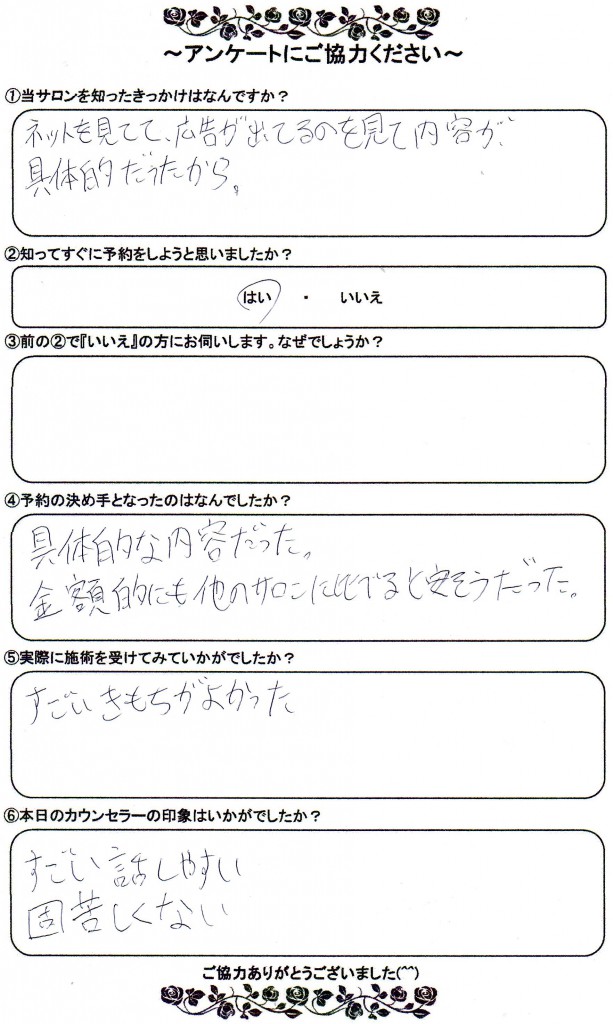 ～アンケートにご協力ください～
①当サロンを知ったきっかけはなんですか？
ネットを見てて、広告が出てるのを見て内容が、
具体的だったから。
②知ってすぐに予約をしようと思いましたか？
はい ・ いいえ
③前の②で『いいえ』の方にお伺いします。なぜでしょうか？
④予約の決め手となったのはなんでしたか？
具体的な内容だった。
金額的にも他のサロンに比べると安そうだった。
⑤実際に施術を受けてみていかがでしたか？
すごいきもちがよかった
⑥本日のカウンセラーの印象はいかがでしたか？
すごい話しやすい
固苦しくない
ご協力ありがとうございました(^^)